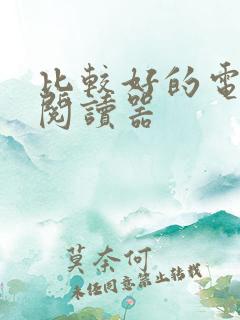 比較好的電
閱讀器
莫奈何
未经同意禁止转载